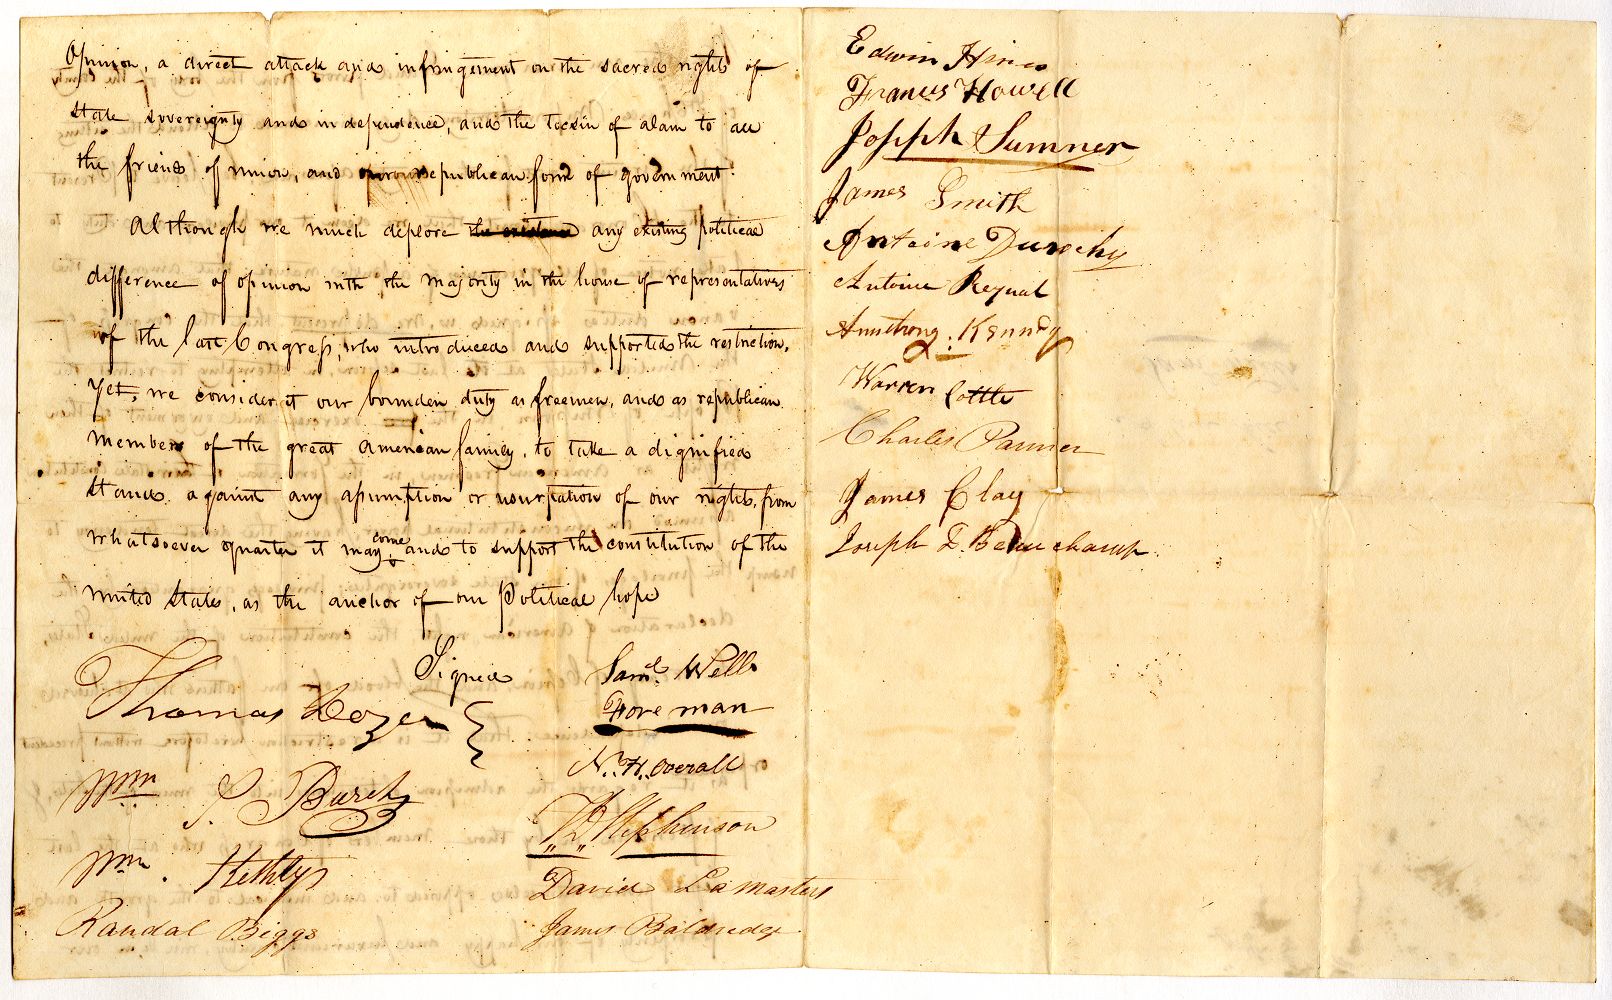 Opinion, a direct attack and infringement on the sacred rights of
State sovereignty and independence, and the tocsin of alarm to all
the friends of union, and republican form of government.
Although we much deplore the existence any existing political
difference of opinion with the majority in the house of representatives
of the last Congress, who introduced and supported the restriction,
Yet, we consider it our bounden duty as freemen, and as republican
members of the great American family, to take a dignified
stand against any assumption or usurpation of our rights, from
whatsoever quarter it may come and to support the constitution of the
united States, as the anchor of our Political hope
Signed
Thomas Dozer
Wm S. Burch
Wm. Kethly
Randal Biggs
Saml. Wells
Foreman
N. H. Overall
David Lamasters
James Baldridge
Edwin Hines
Francis Howell
Joseph Sumner
James Smith
Antoine Durochy
Antoine Reynal
Armstrong Kennedy
Warren Cottle
Charles
James Clay
Joseph Beauchamp